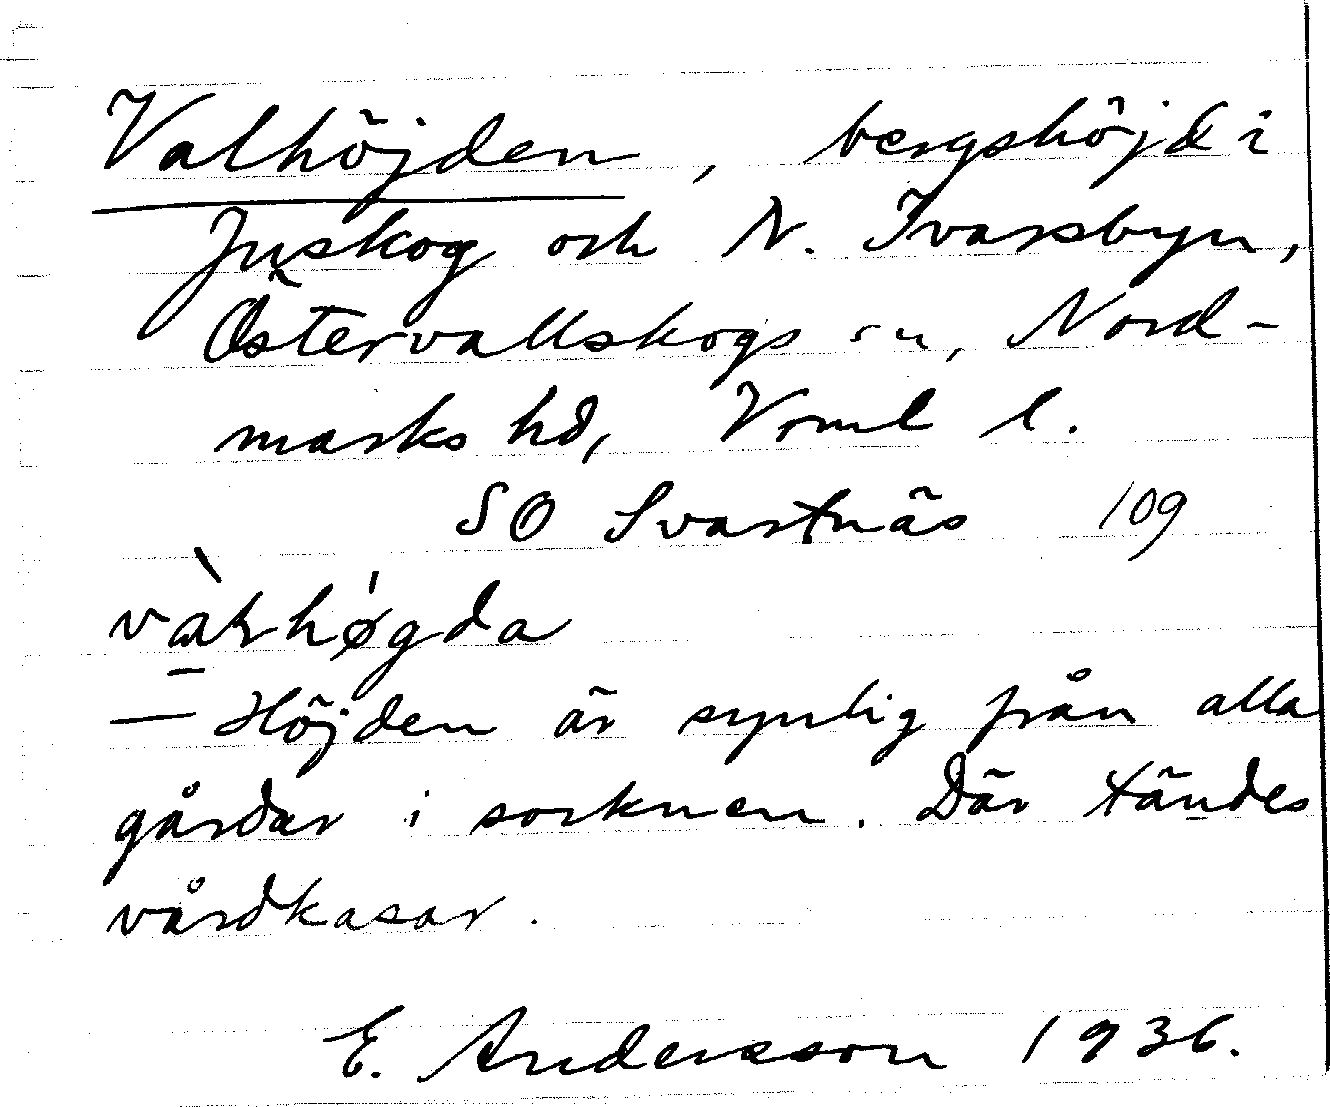 Valhöjden, bergshöjd i
Juskog och N. Ivarsbyn,
Östervallskogs sn, Nord-
marks hd, Vrml l.
SO Svartnäs 109
høgda
— Höjden är synlig från alla
gårdar i socknen. Där tändes
vårdkasar.
E. Andersson 1936.